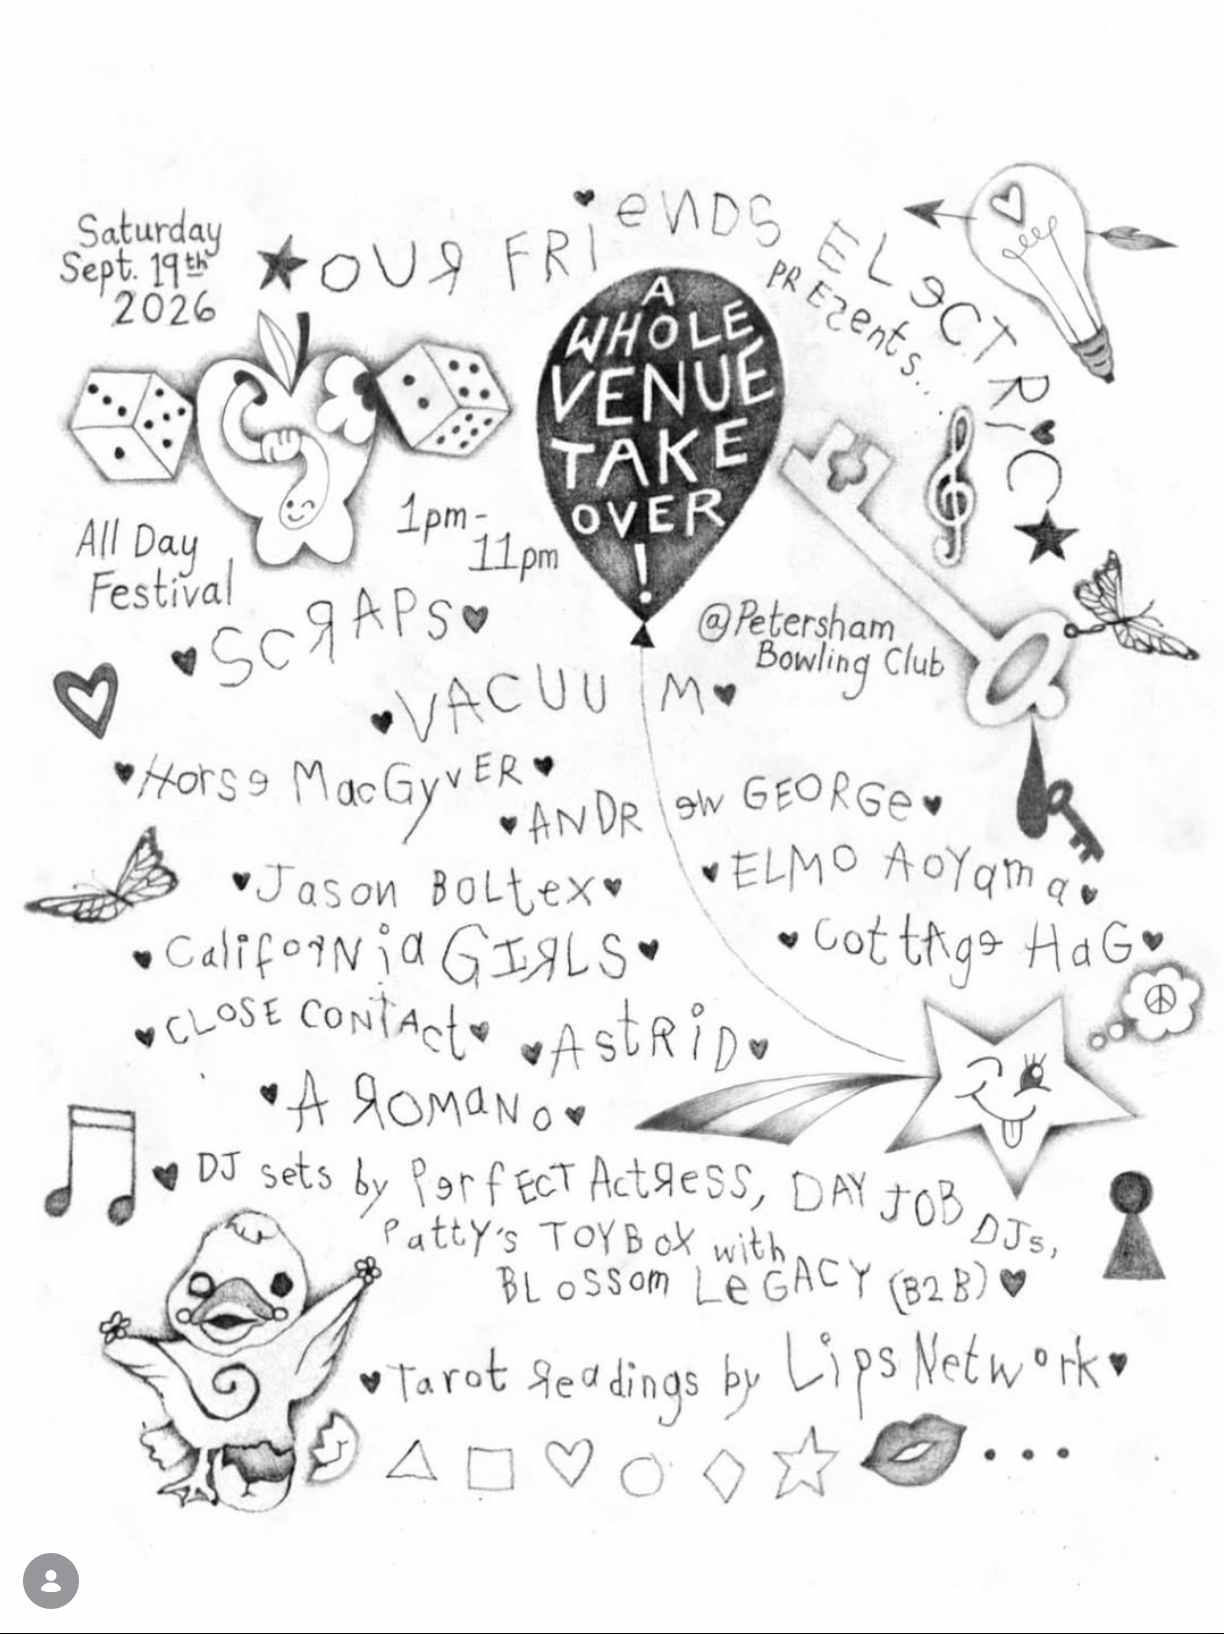 Saturday
Sept. 19th
2026
OUR FRIENDS ELECTRIC
PREZENTS...
A
WHOLE
VENUE
TAKE
OVER
!
All Day
Festival
1pm-
11pm
@Petersham
Bowling Club
SCRAPS
VACUUM
Horse MacGyvER
ANDRew GEORGe
Jason BOLtex
ELMO AoYama
California GIRLS
CottAge HaG
CLOSE CONTAct
AstRiD
A ROMaNo
DJ sets by PerfECT ActRess, DAY JOB DJs,
Patty's TOYBOX with
BLossom LeGACY (B2B)
Tarot Readings by Lips Network
...